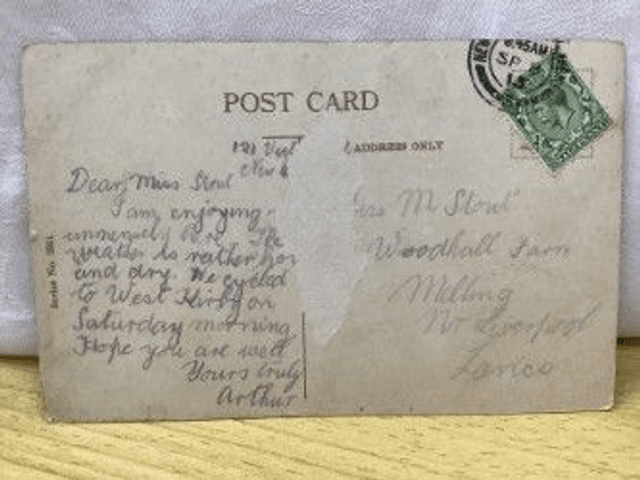 8.45AM
SP
POST CARD
ADDRESS ONLY
121
Dear Miss Stout
I am enjoying
The
weather is rather hot
and dry. We cycled
to West Kirby on
Saturday morning
Hope you are well
Yours truly
Arthur
M Stout
Woodhall Farm
Melling
Nr Liverpool
Lancs
Series No.